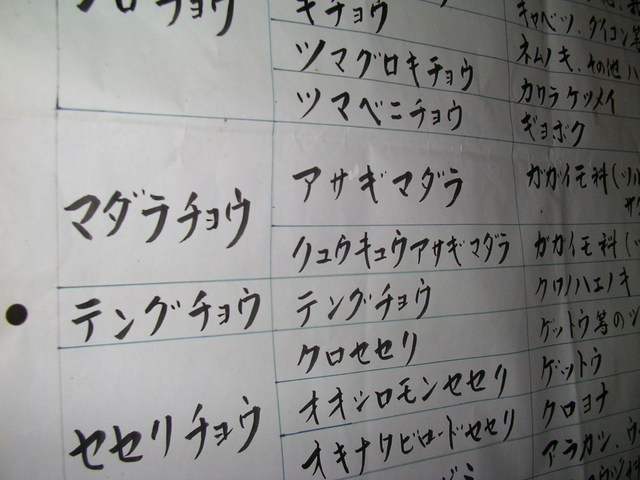 シロチョウ
キチョウ
キャベツ、ダイコン等
ツマグロキチョウ
ネムノキ、その他
ツマベニチョウ
カワラケツメイ
ギョボク
マダラチョウ
アサギマダラ
ガガイモ科(ツル
リュウキュウアサギマダラ
ガガイモ科(
テングチョウ
テングチョウ
クワノハエノキ
セセリチョウ
クロセセリ
ゲットウ等の
オオシロモンセセリ
ゲットウ
オキナワビロードセセリ
クロヨナ
アラカシ、